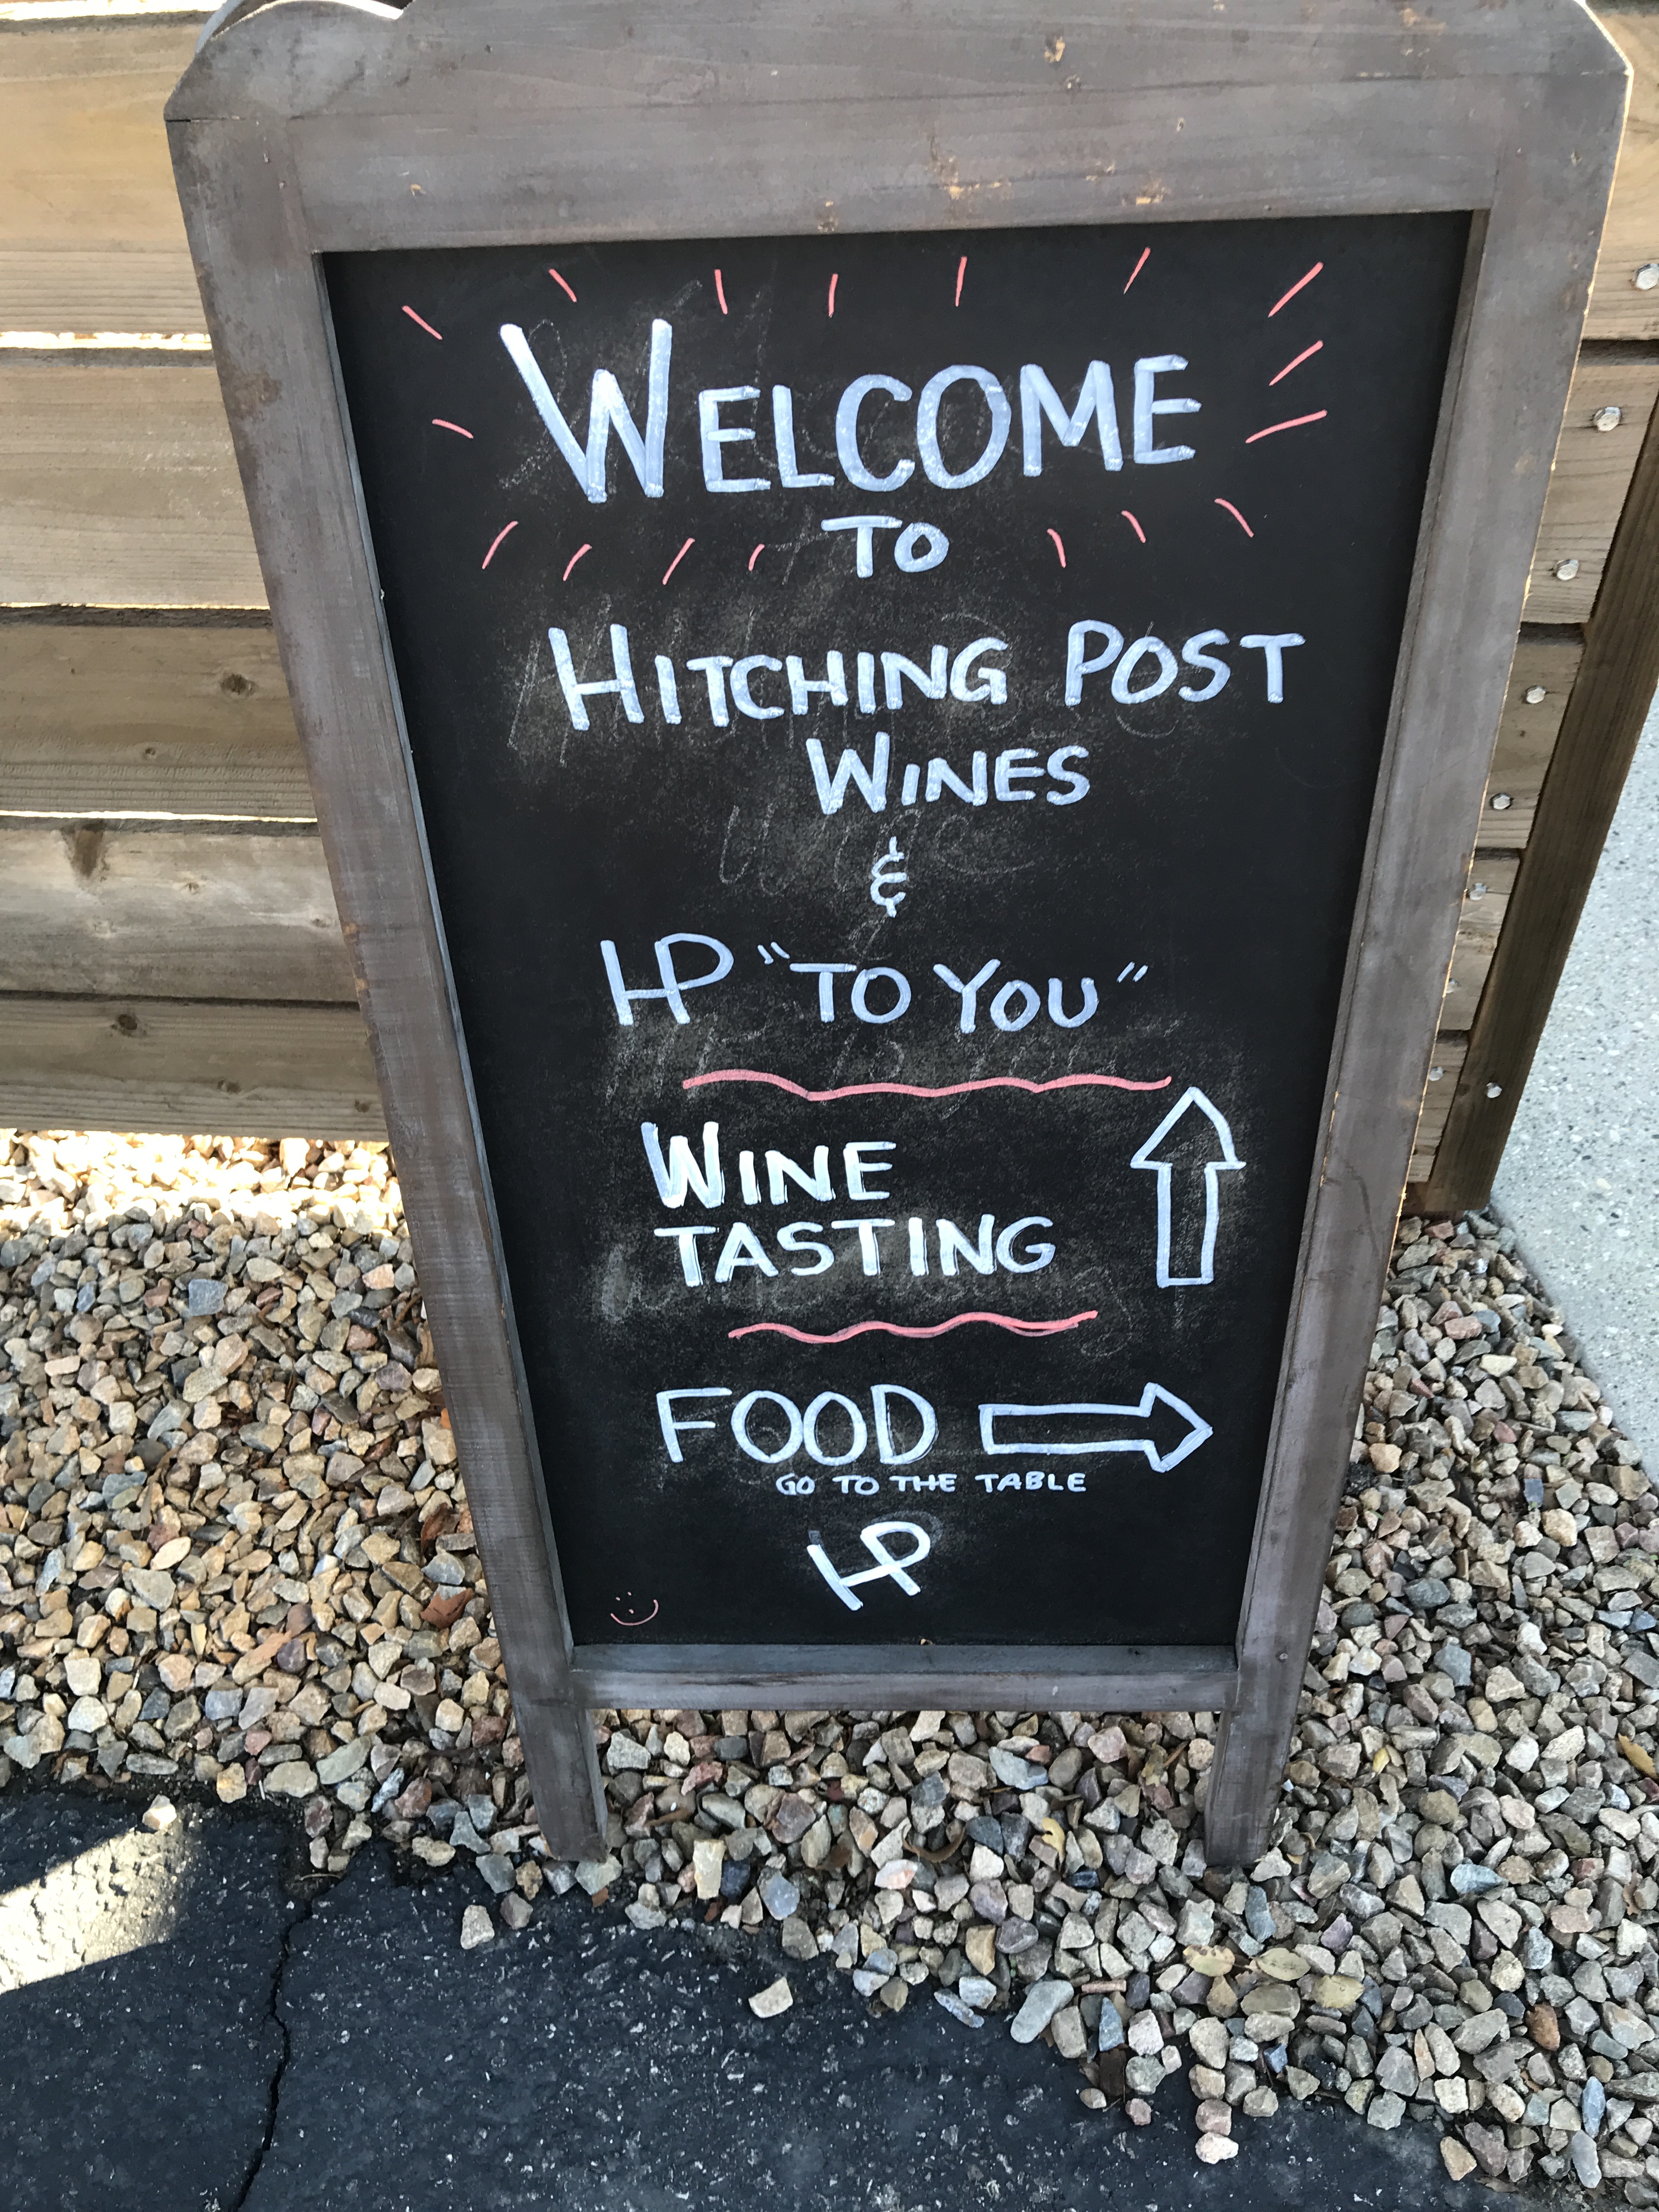 WELCOME
TO
HITCHING POST
WINES
&
HP "TO YOU"
WINE
TASTING
FOOD
GO TO THE TABLE
HP